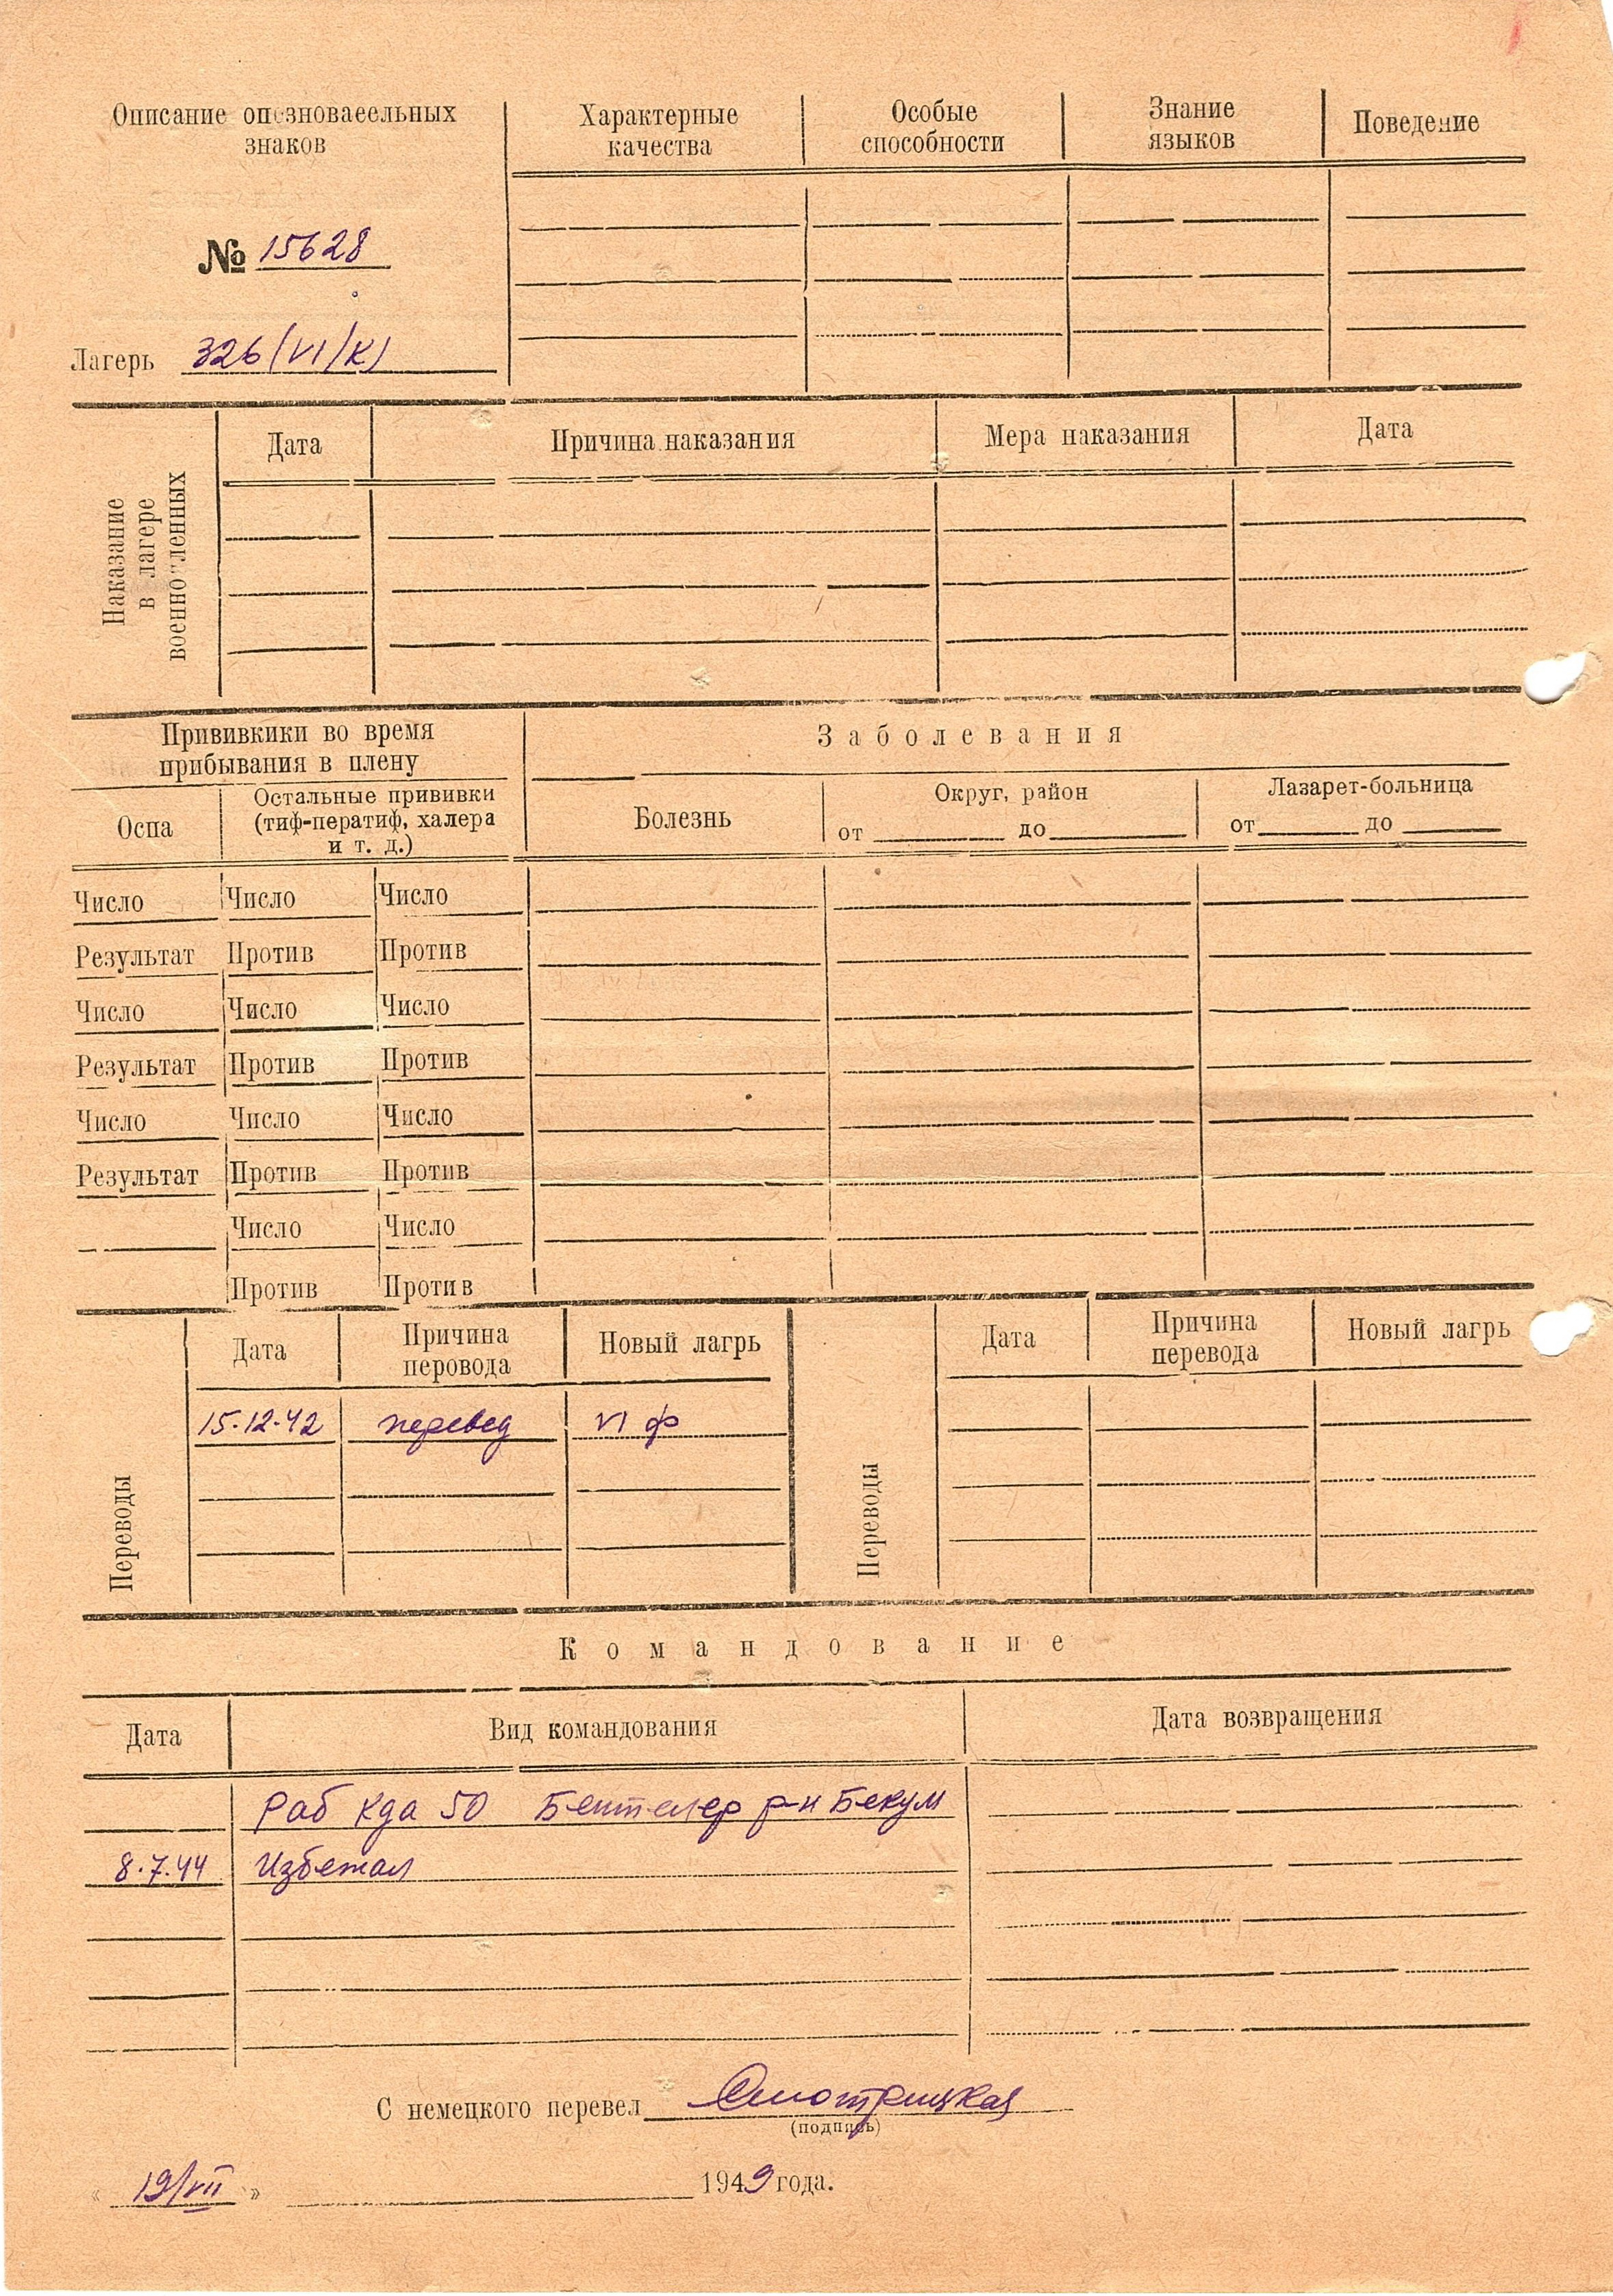 Описание опозноваеельных
знаков
Характерные
качества
Особые
способности
Знание
языков
Поведение
№ 15628
Лагерь 326/VI/К/
Наказание
в лагере
военнопленных
Дата
Причина наказания
Мера наказания
Дата
Прививкики во время
прибывания в плену
Заболевания
Оспа
Остальные прививки
(тиф-ператиф, халера
и т. д.)
Болезнь
Округ, район
от до
Лазарет-больница
от до
Число Число Число
Результат Против Против
Число Число Число
Результат Против Против
Число Число Число
Результат Против Против
Число Число
Против Против
Переводы
Дата
Причина
перовода
Новый лагрь
15.12.42 перевед VI ф
Переводы
Дата
Причина
перевода
Новый лагрь
Командование
Дата
Вид командования
Дата возвращения
Раб кда 50 Бентелер р-н Бекум
8.7.44 Избежал
С немецкого перевел Смотрицкая
(подпись)
« 19/VII » 1949 года.